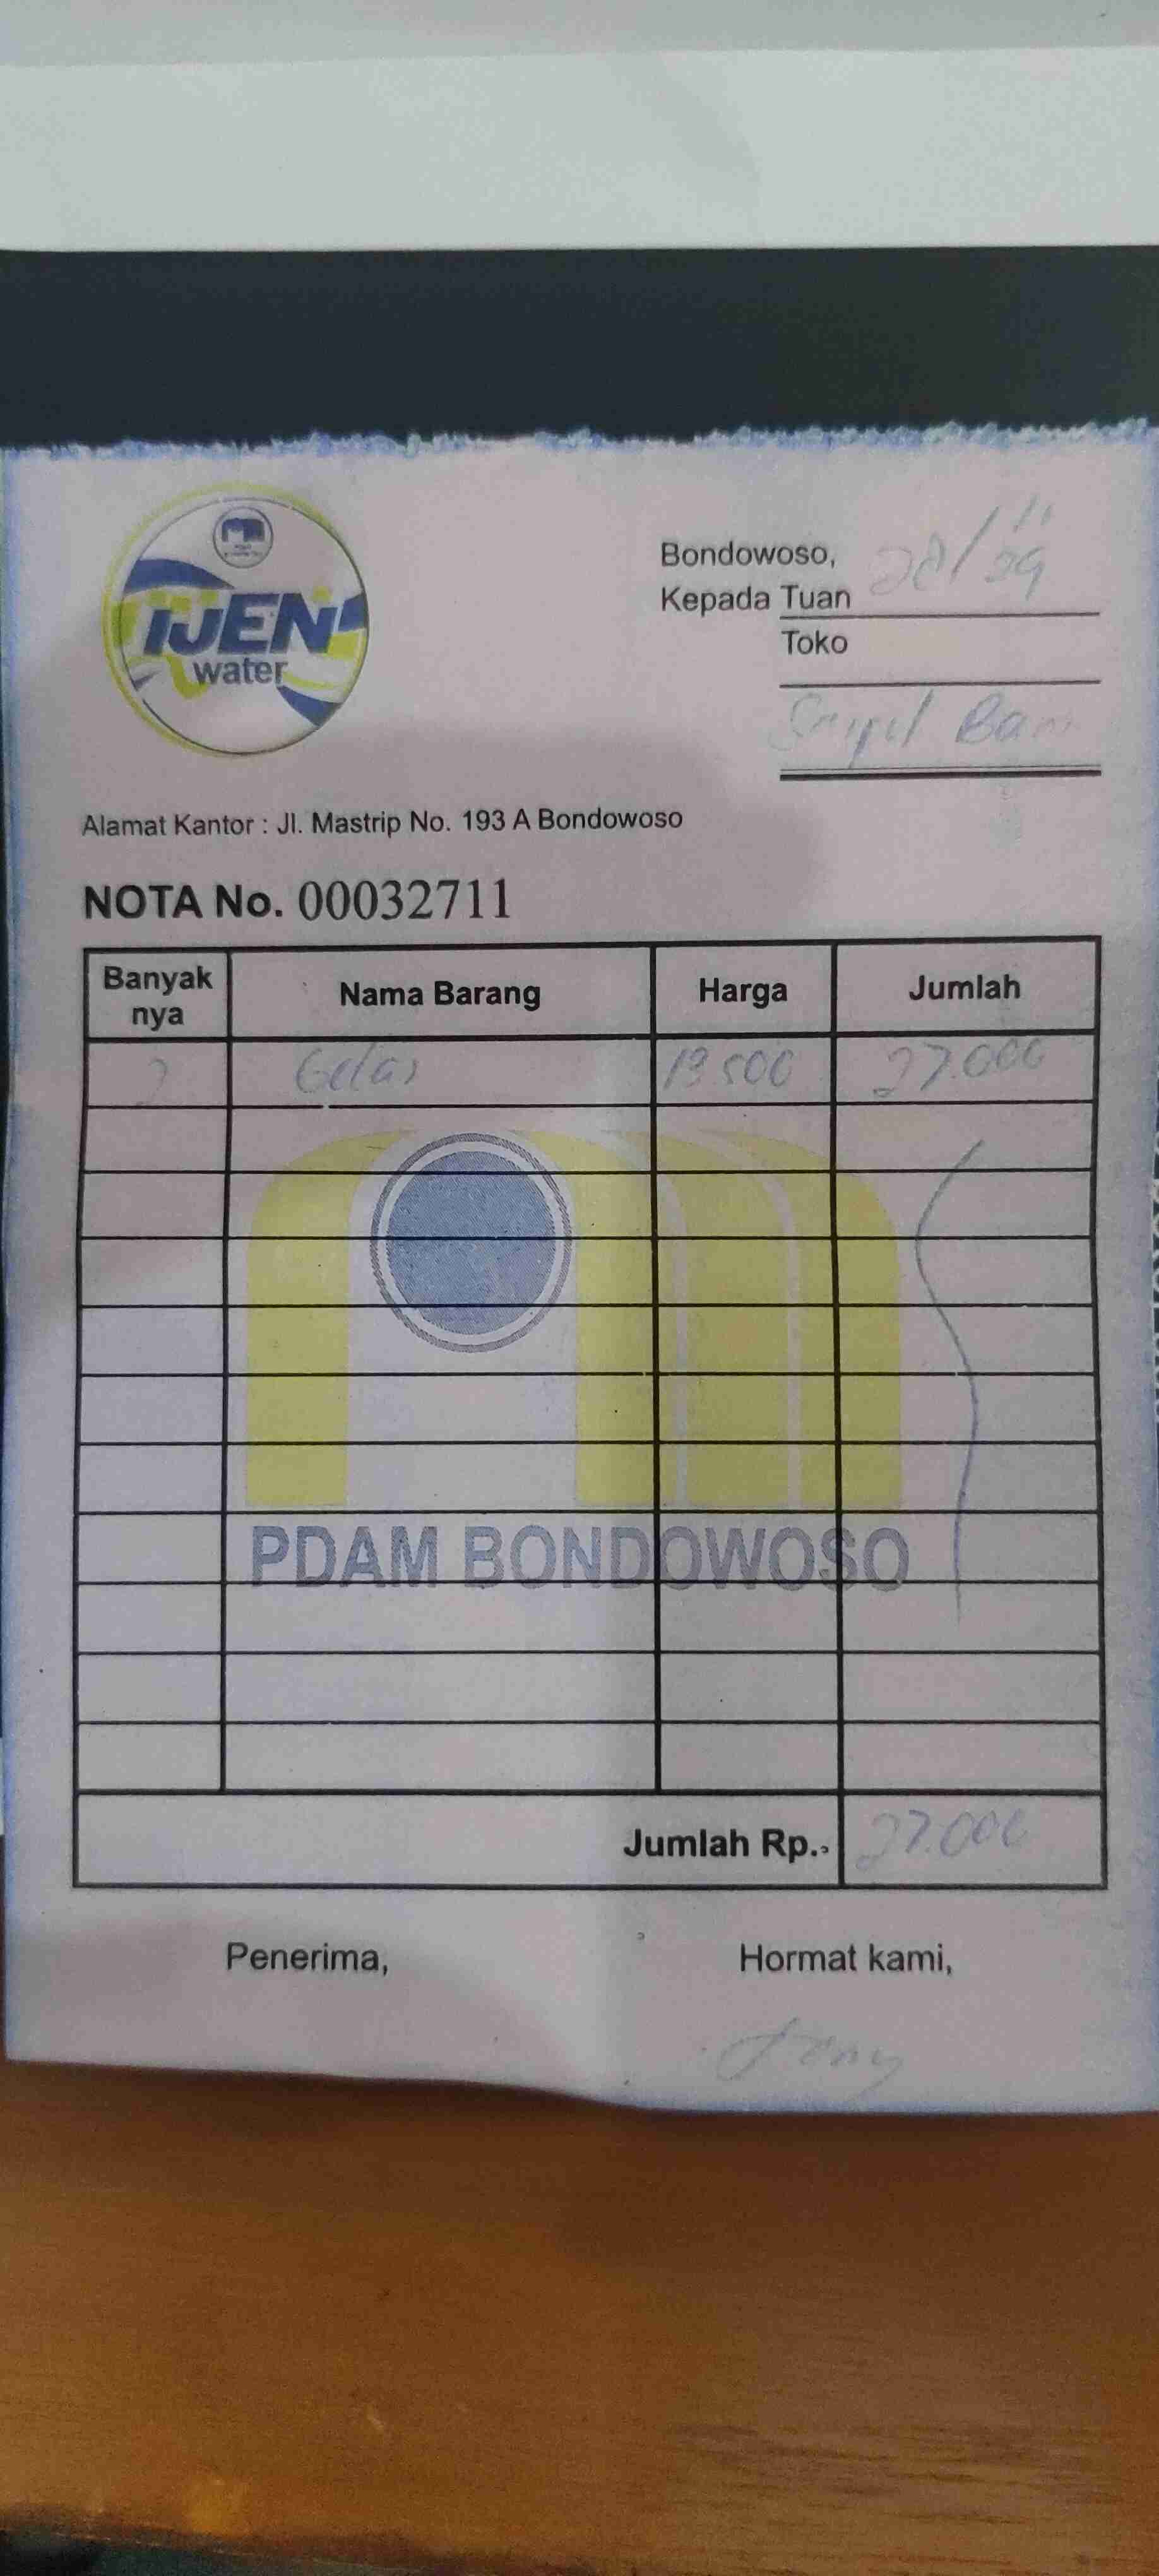 IJEN
water
Bondowoso, 28/11
Kepada Tuan
Toko
Alamat Kantor : Jl. Mastrip No. 193 A Bondowoso
NOTA No. 00032711
Banyak nya Nama Barang Harga Jumlah
2 Gelas 13500 27.000
PDAM BONDOWOSO
Jumlah Rp.- 27.000
Penerima, Hormat kami,